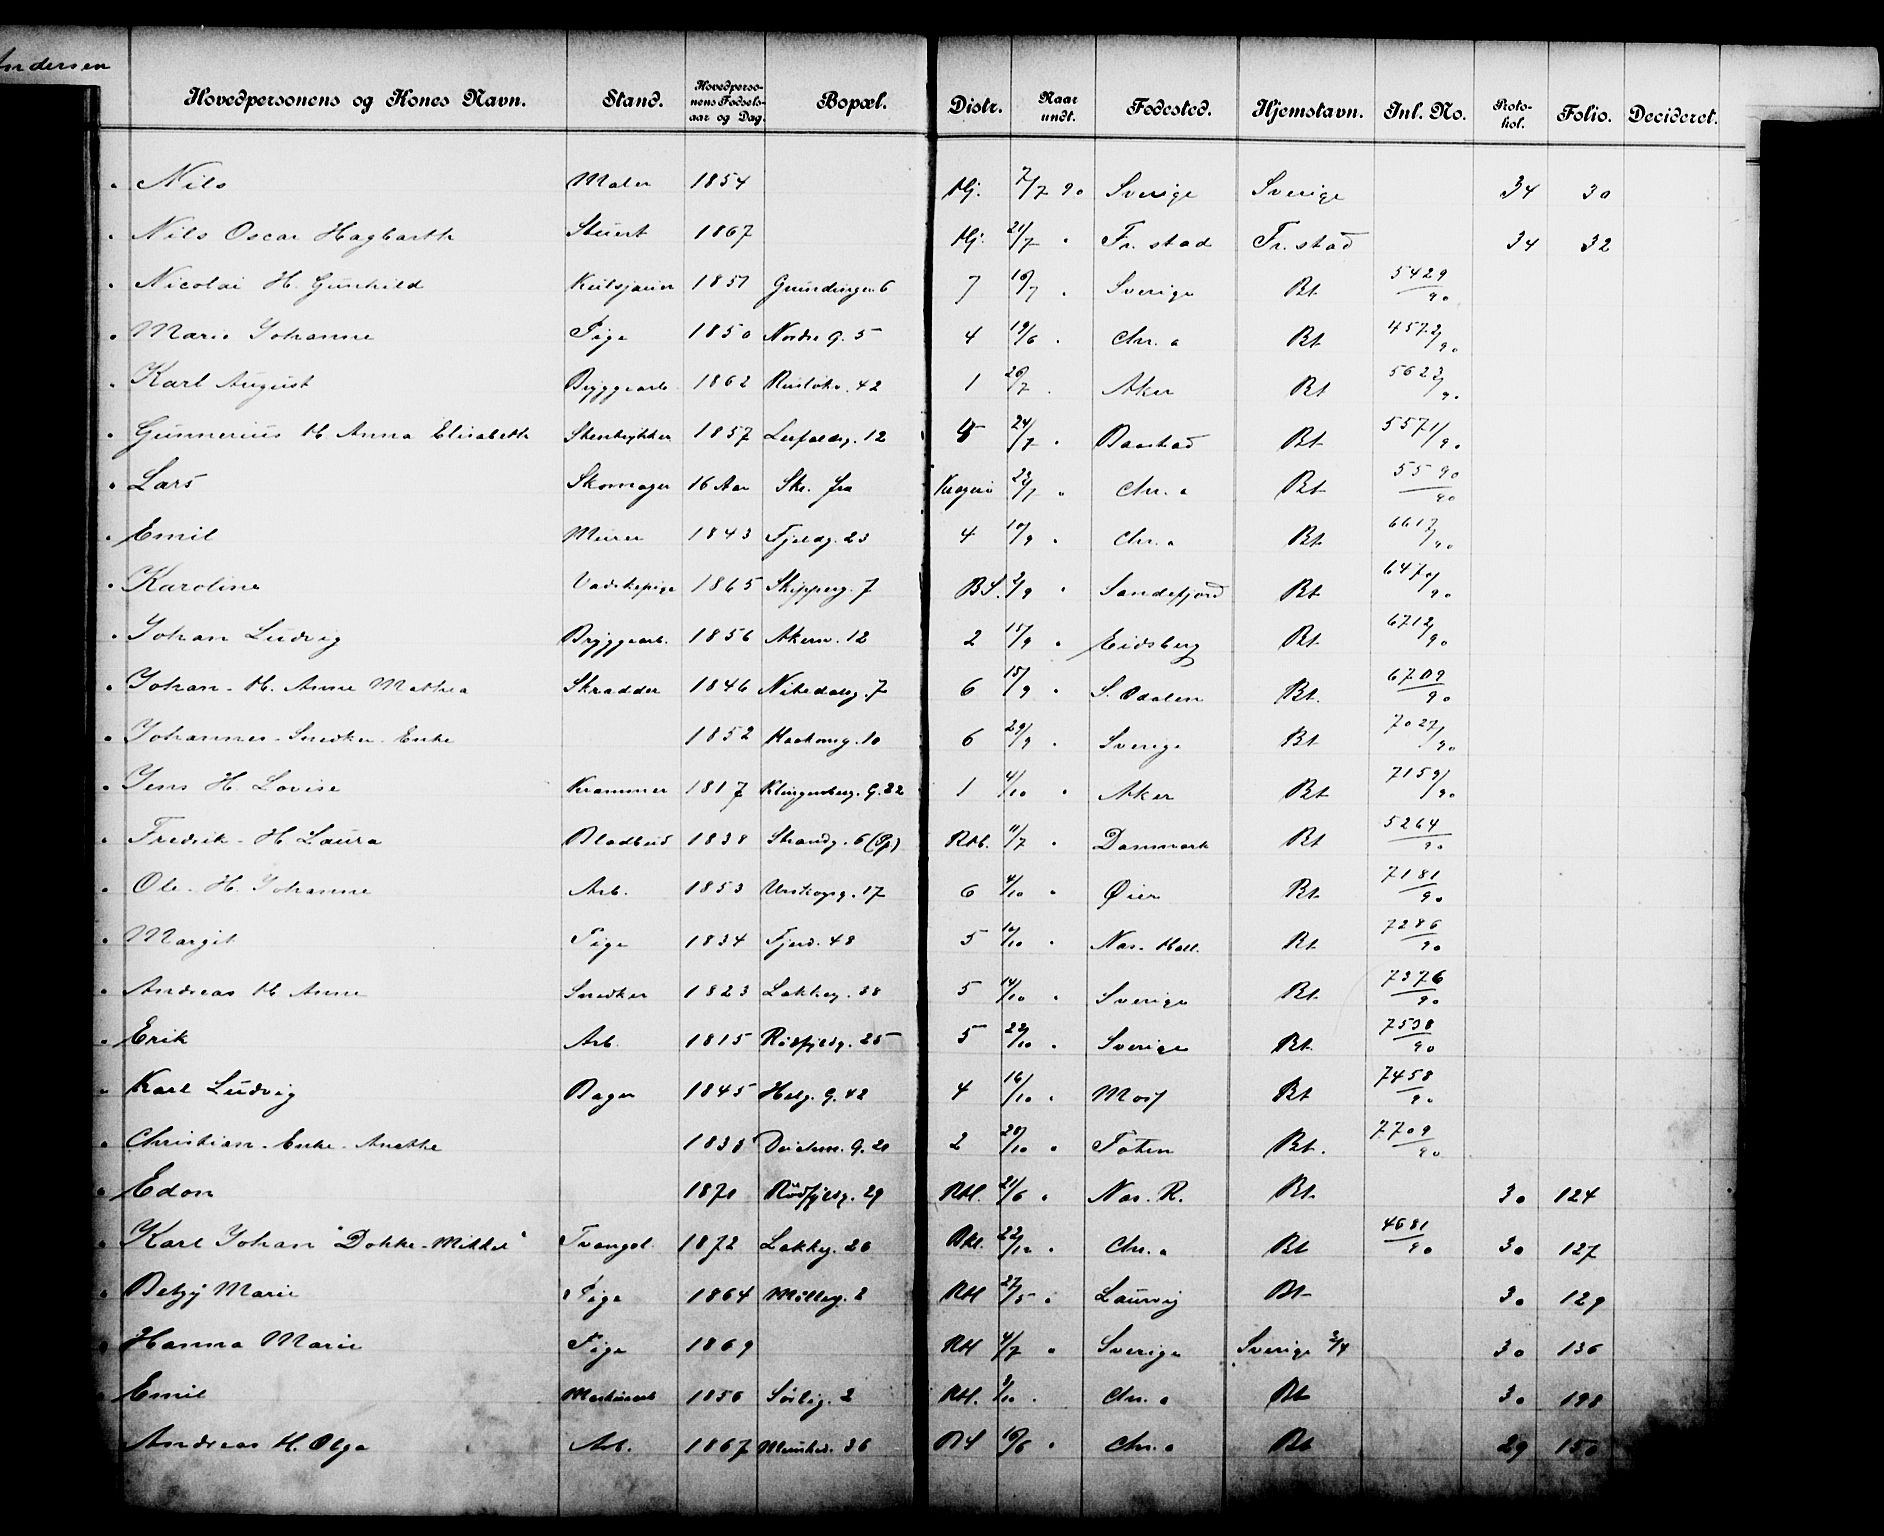 Andersen
Hovedpersonens og Kones Navn. Stand. Hovedperso-nens Fødsels-aar og Dag. Bopæl. Distr. Naar undt. Fødested. Hjemstavn. Inl. No. Proto-kol. Folio. Decideret.
" Nils Maler 1854 Hj. 7/7 90 Sverige Sverige 34 30
" Nils Oscar Hagbarth Stuert 1867 Hj. 21/7 " Fr. stad Fr. stad 34 32
" Nicolai H. Gunhild 1857 6 7 16/7 " Sverige Bt 5429/90
" Marie Johanne Pige 1850 Nordre g. 5 4 19/6 " Chr. a Bt 4572/90
" Karl August Bryggearb. 1862 Ruseløkv. 42 1 26/7 " Aker Bt 5623/90
" Gunnerius H. Anna Elisabeth Stenhugger 1857 12 24/7 " Baastad Bt 5571/90
" Lars Skomager 16 Aar Skr. fra Kragerø 23/7 " Chr. a Bt 5590/90
" Emil Murer 1843 Fjeldg. 23 4 10/9 " Chr. a Bt 6617/90
" Karoline Vadskepige 1865 Skipperg. 7 BS. 2/9 " Sandefjord Bt 6470/90
" Johan Ludvig Bryggearb. 1856 Akersv. 12 2 15/9 " Eidsberg Bt 6712/90
" Johan - H. Anne Mathea Skrædder 1846 Nitedalsg. 7 6 15/9 " S. Odalen Bt. 6709/90
" Johannes - Snedker - Enke 1852 Haakonsg. 10 6 29/9 " Sverige Bt 7027/90
" Jens H. Lovise Kræmmer 1817 Klingenberg. G. 32 1 4/10 " Aker Bt 7159/90
" Fredrik - H Laura Bladbud 1838 Strandg. 6 (Pp) Rbl. 11/7 " Danmark Bt 5264/90
" Ole - H. Johanne Arb. 1853 Urskogsg. 17 6 4/10 " Øier Bt 7181/90
" Margit Pige 1834 Fjerd. 48 5 10/10 " Næs. Hall. Bt 7286/90
" Andreas H Anne Snedker 1823 Lakkeg. 38 5 14/10 " Sverige Bt 7376/90
" Erik Arb. 1815 Rødfjeldg. 25 5 22/10 " Sverige Bt. 7538/90
" Karl Ludvig Bager 1845 Helg. G. 42 4 16/10 " Moss Bt 7458/90
" Christian - Enke - Anethe 1835 G. 20 2 28/10 " Toten Bt. 7709/90
" Edon 1870 Rødfjeldg. 29 Rbl. 21/6 " Næs. R. Bt 30 124
" Karl Johan "Dokke-Mikkel" Tvangsl. 1872 Lakkeg. 26 Rbl. 22/12 " Chr. a Bt 4681/90 30 127
" Betzy Marie Pige 1864 Mølleg. 2 Rbl 27/5 " Laurvig Bt 30 129
" Hanna Marie Pige 1869 Rbl 4/7 " Sverige Sverige 3/4 30 136
" Emil 1856 Sørlig. 2 Rbl. 3/10 " Chr. a Bt 30 198
Andreas H. Olga Arb. 1867 Munked. 36 16/6 " Chr. a Bt 29 150